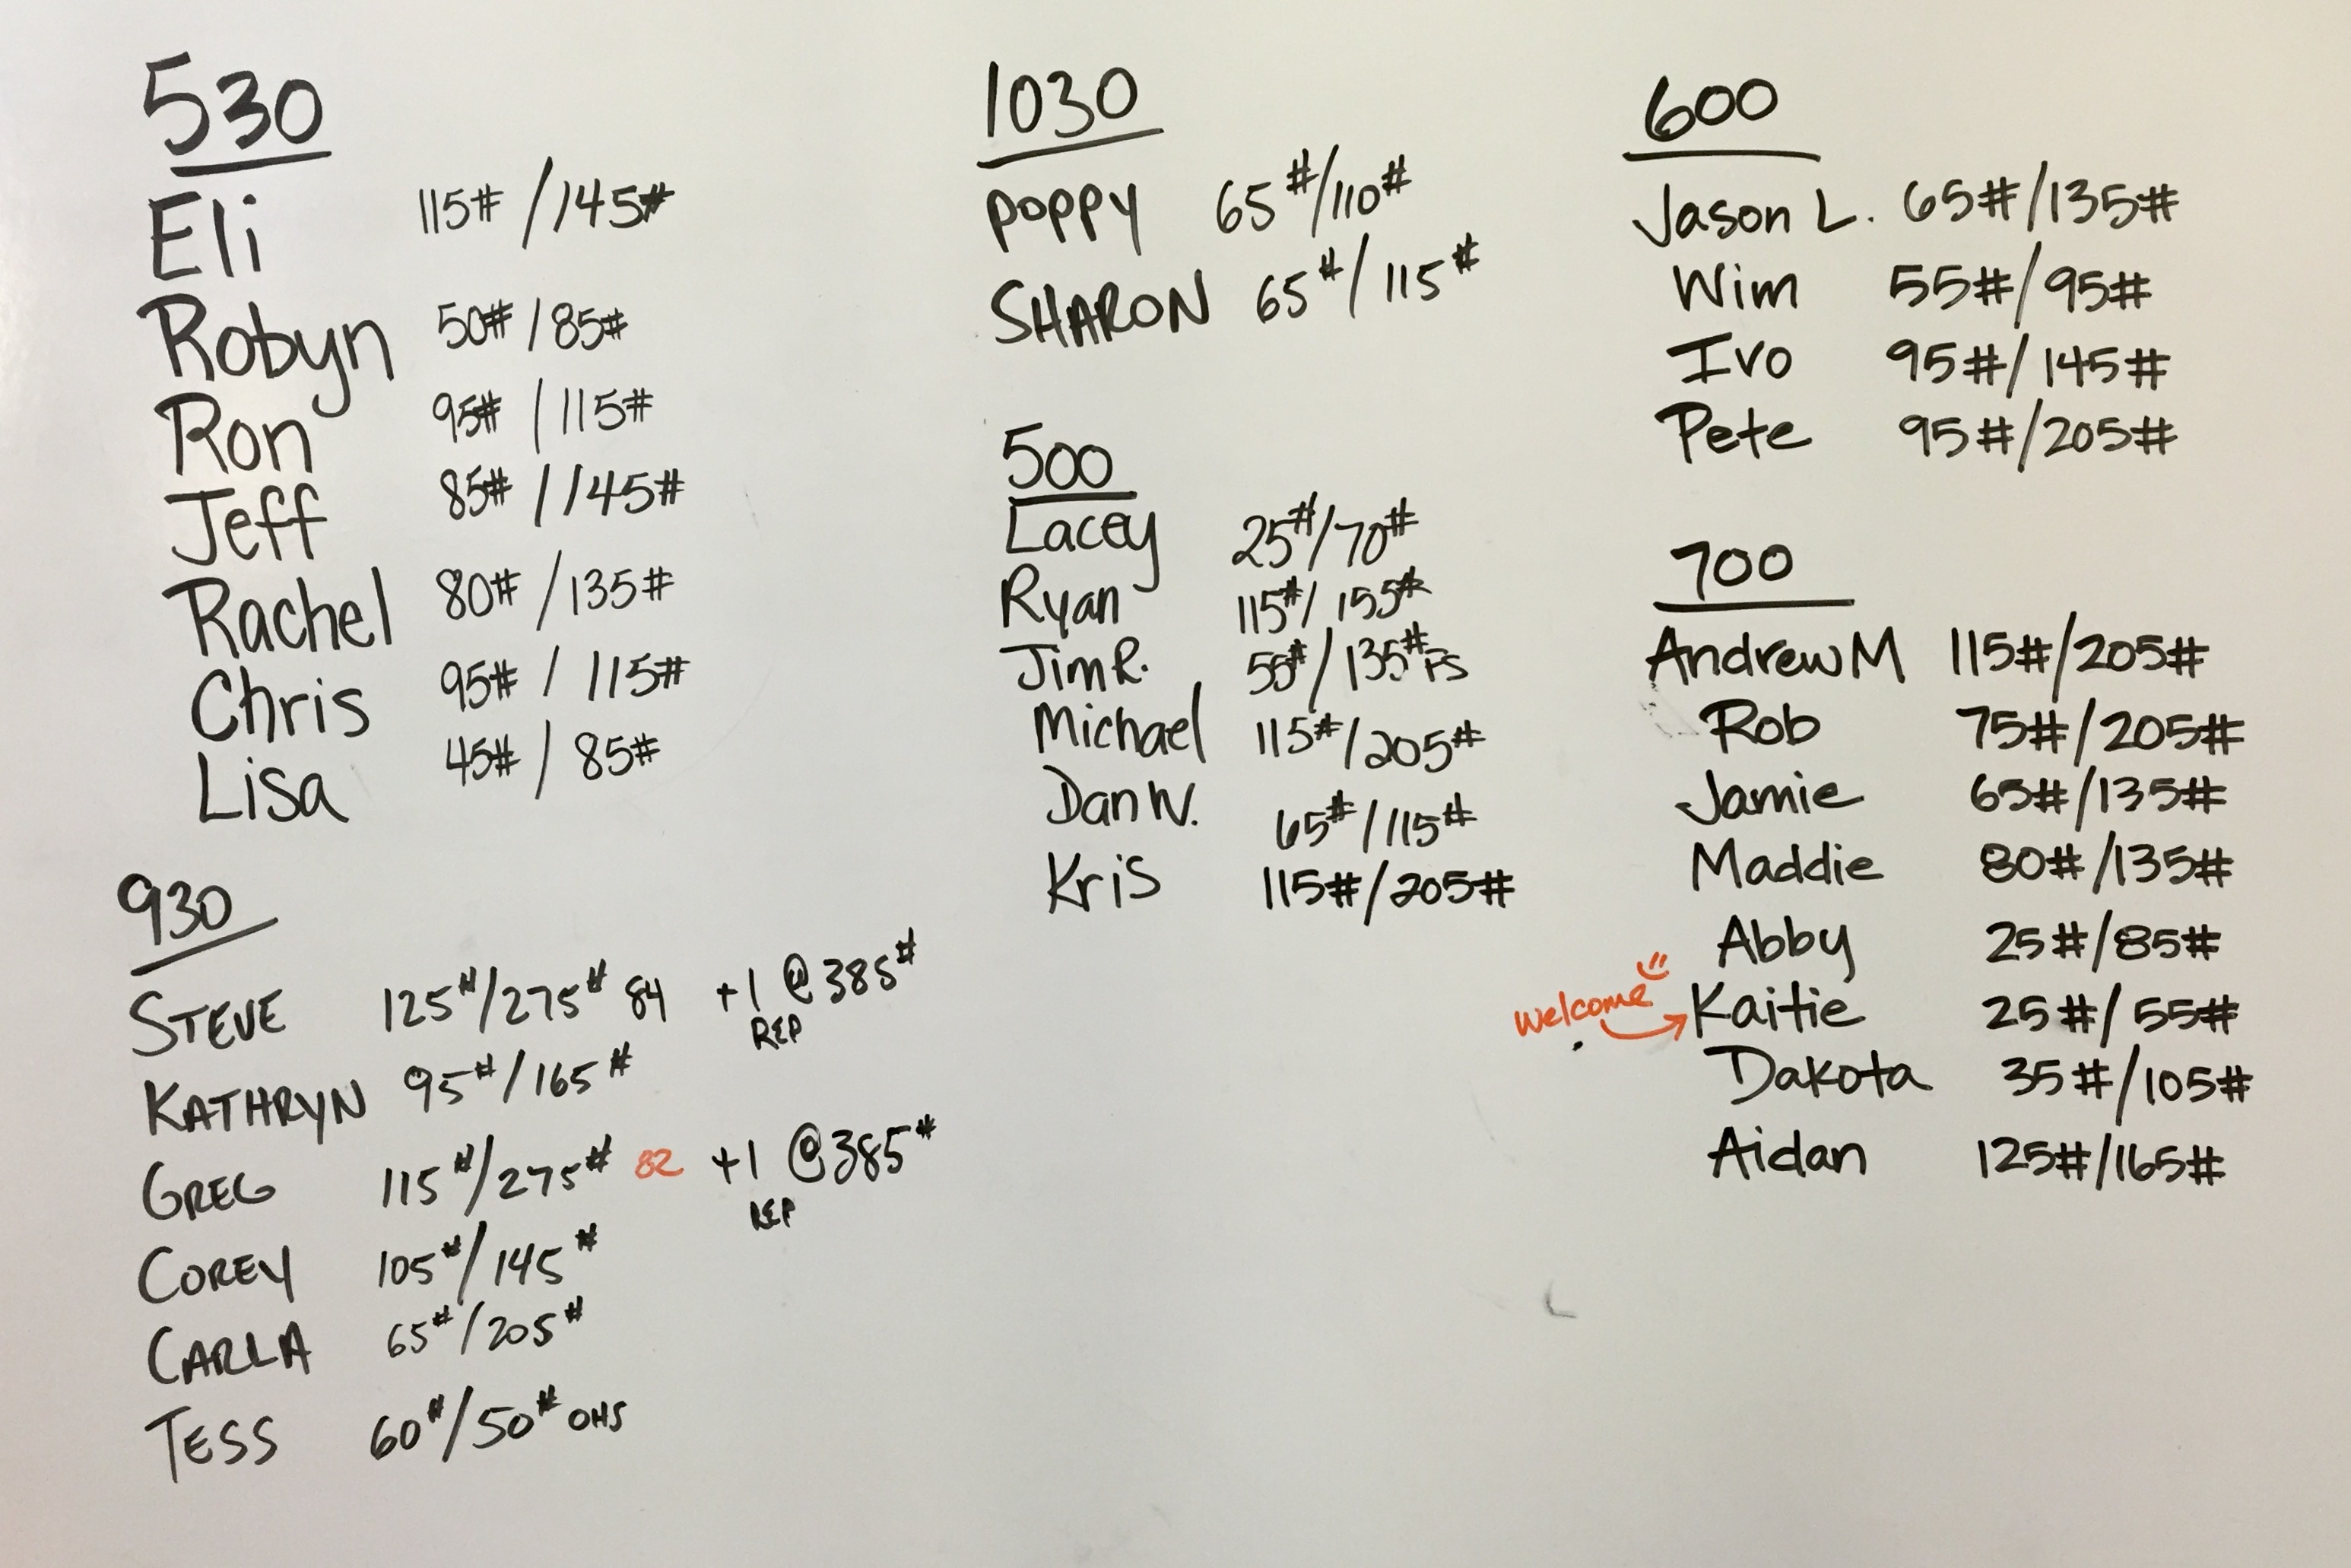 530
Eli 115# / 145#
Robyn 50# / 85#
Ron 95# / 115#
Jeff 85# / 145#
Rachel 80# / 135#
Chris 95# / 115#
Lisa 45# / 85#
930
STEVE 125#/275# 84 +1 @385#
REP
KATHRYN 95#/165#
GREG 115#/275# 82 +1 @385#
REP
COREY 105#/145#
CARLA 65#/205#
TESS 60#/50# OHS
1030
POPPY 65#/110#
SHARON 65#/115#
500
Lacey 25#/70#
Ryan 115#/155#
Jim R. 55#/135# FS
Michael 115#/205#
Dan W. 65#/115#
Kris 115#/205#
600
Jason L. 65#/135#
Wim 55#/95#
Ivo 95#/145#
Pete 95#/205#
700
Andrew M 115#/205#
Rob 75#/205#
Jamie 65#/135#
Maddie 80#/135#
Abby 25#/85#
welcome Kaitie 25#/55#
Dakota 35#/105#
Aidan 125#/165#